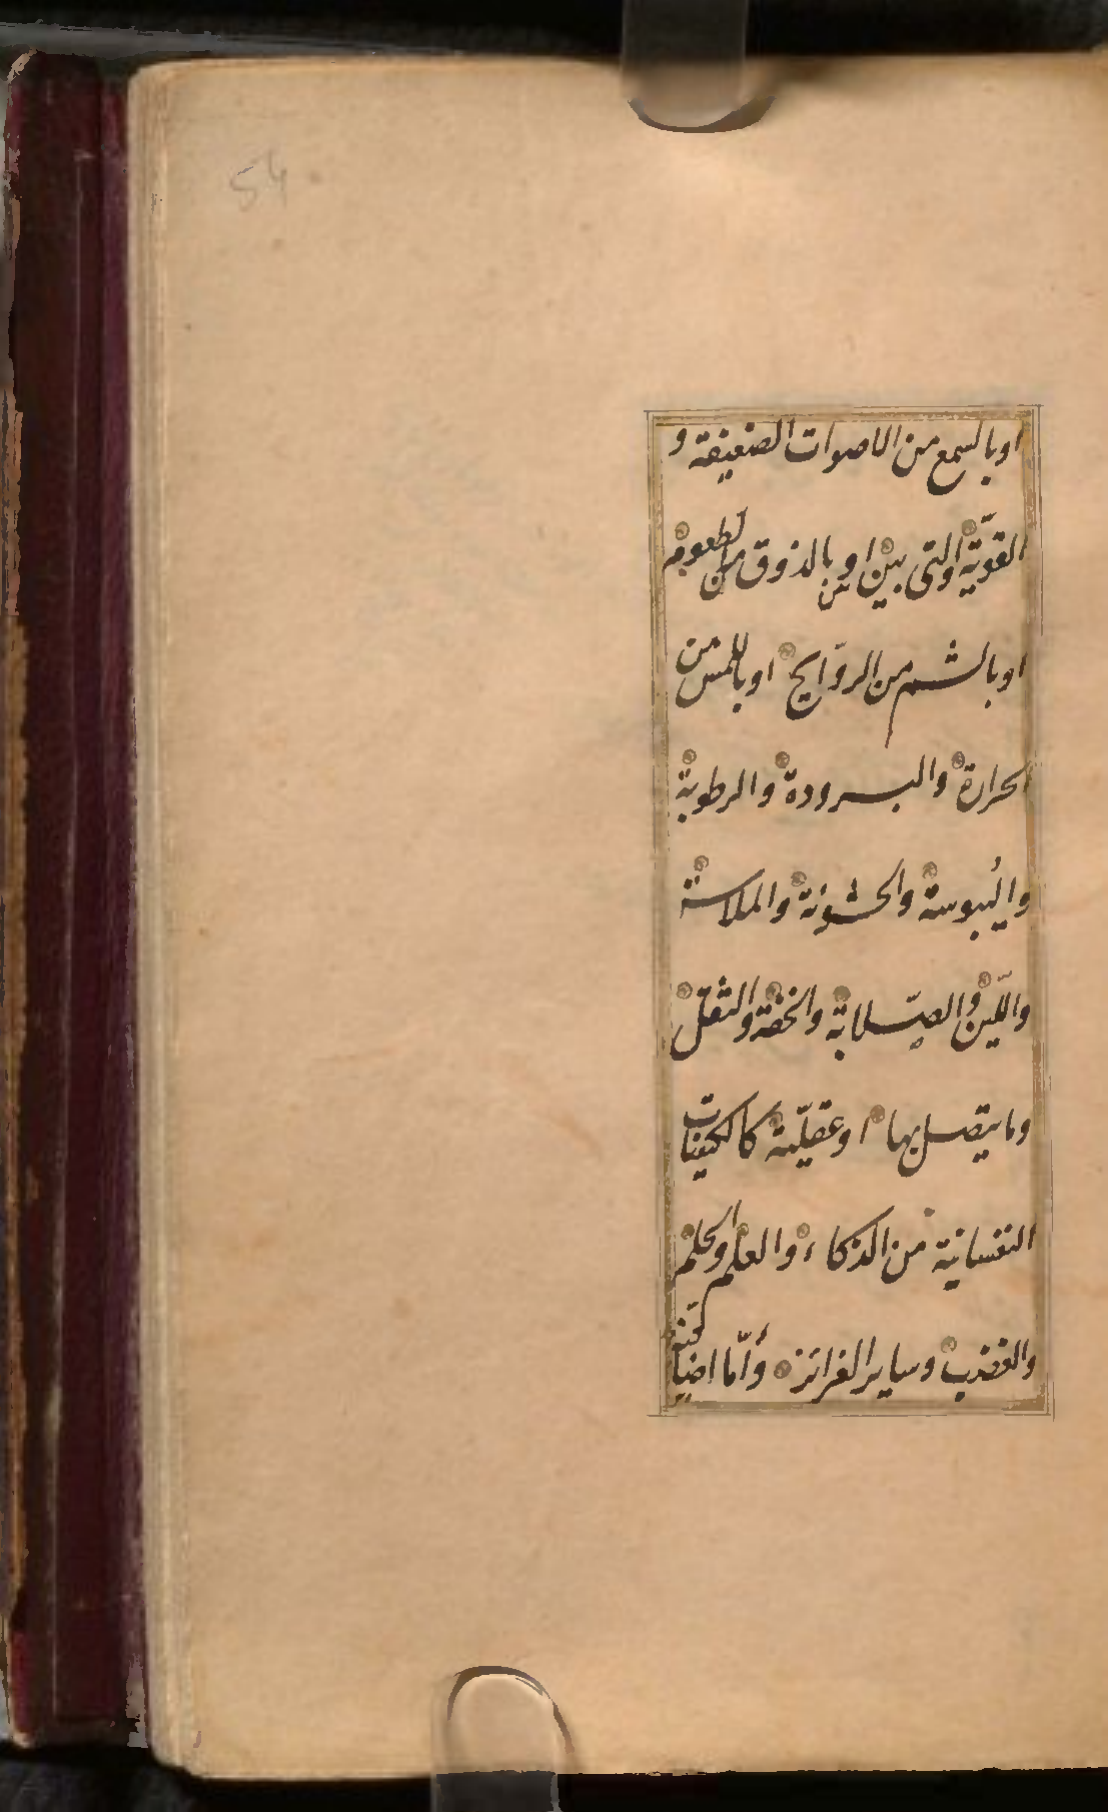 54
او بالسمع من الاصوات الضعيفة و
القويّة والتى بين بين او بالذوق من الطعوم
او بالشم من الروايح او باللمس من
الحرارة والبرودة والرطوبة
واليبوسة والخشونة والملاسة
واللّين والصّلابة والخفة والثقل
وما يتصل بها او عقليّة كالكيفيات
النفسانية من الذكاء والعلم والحلم
والغضب وساير الغرائز وأمّا اضافيّة